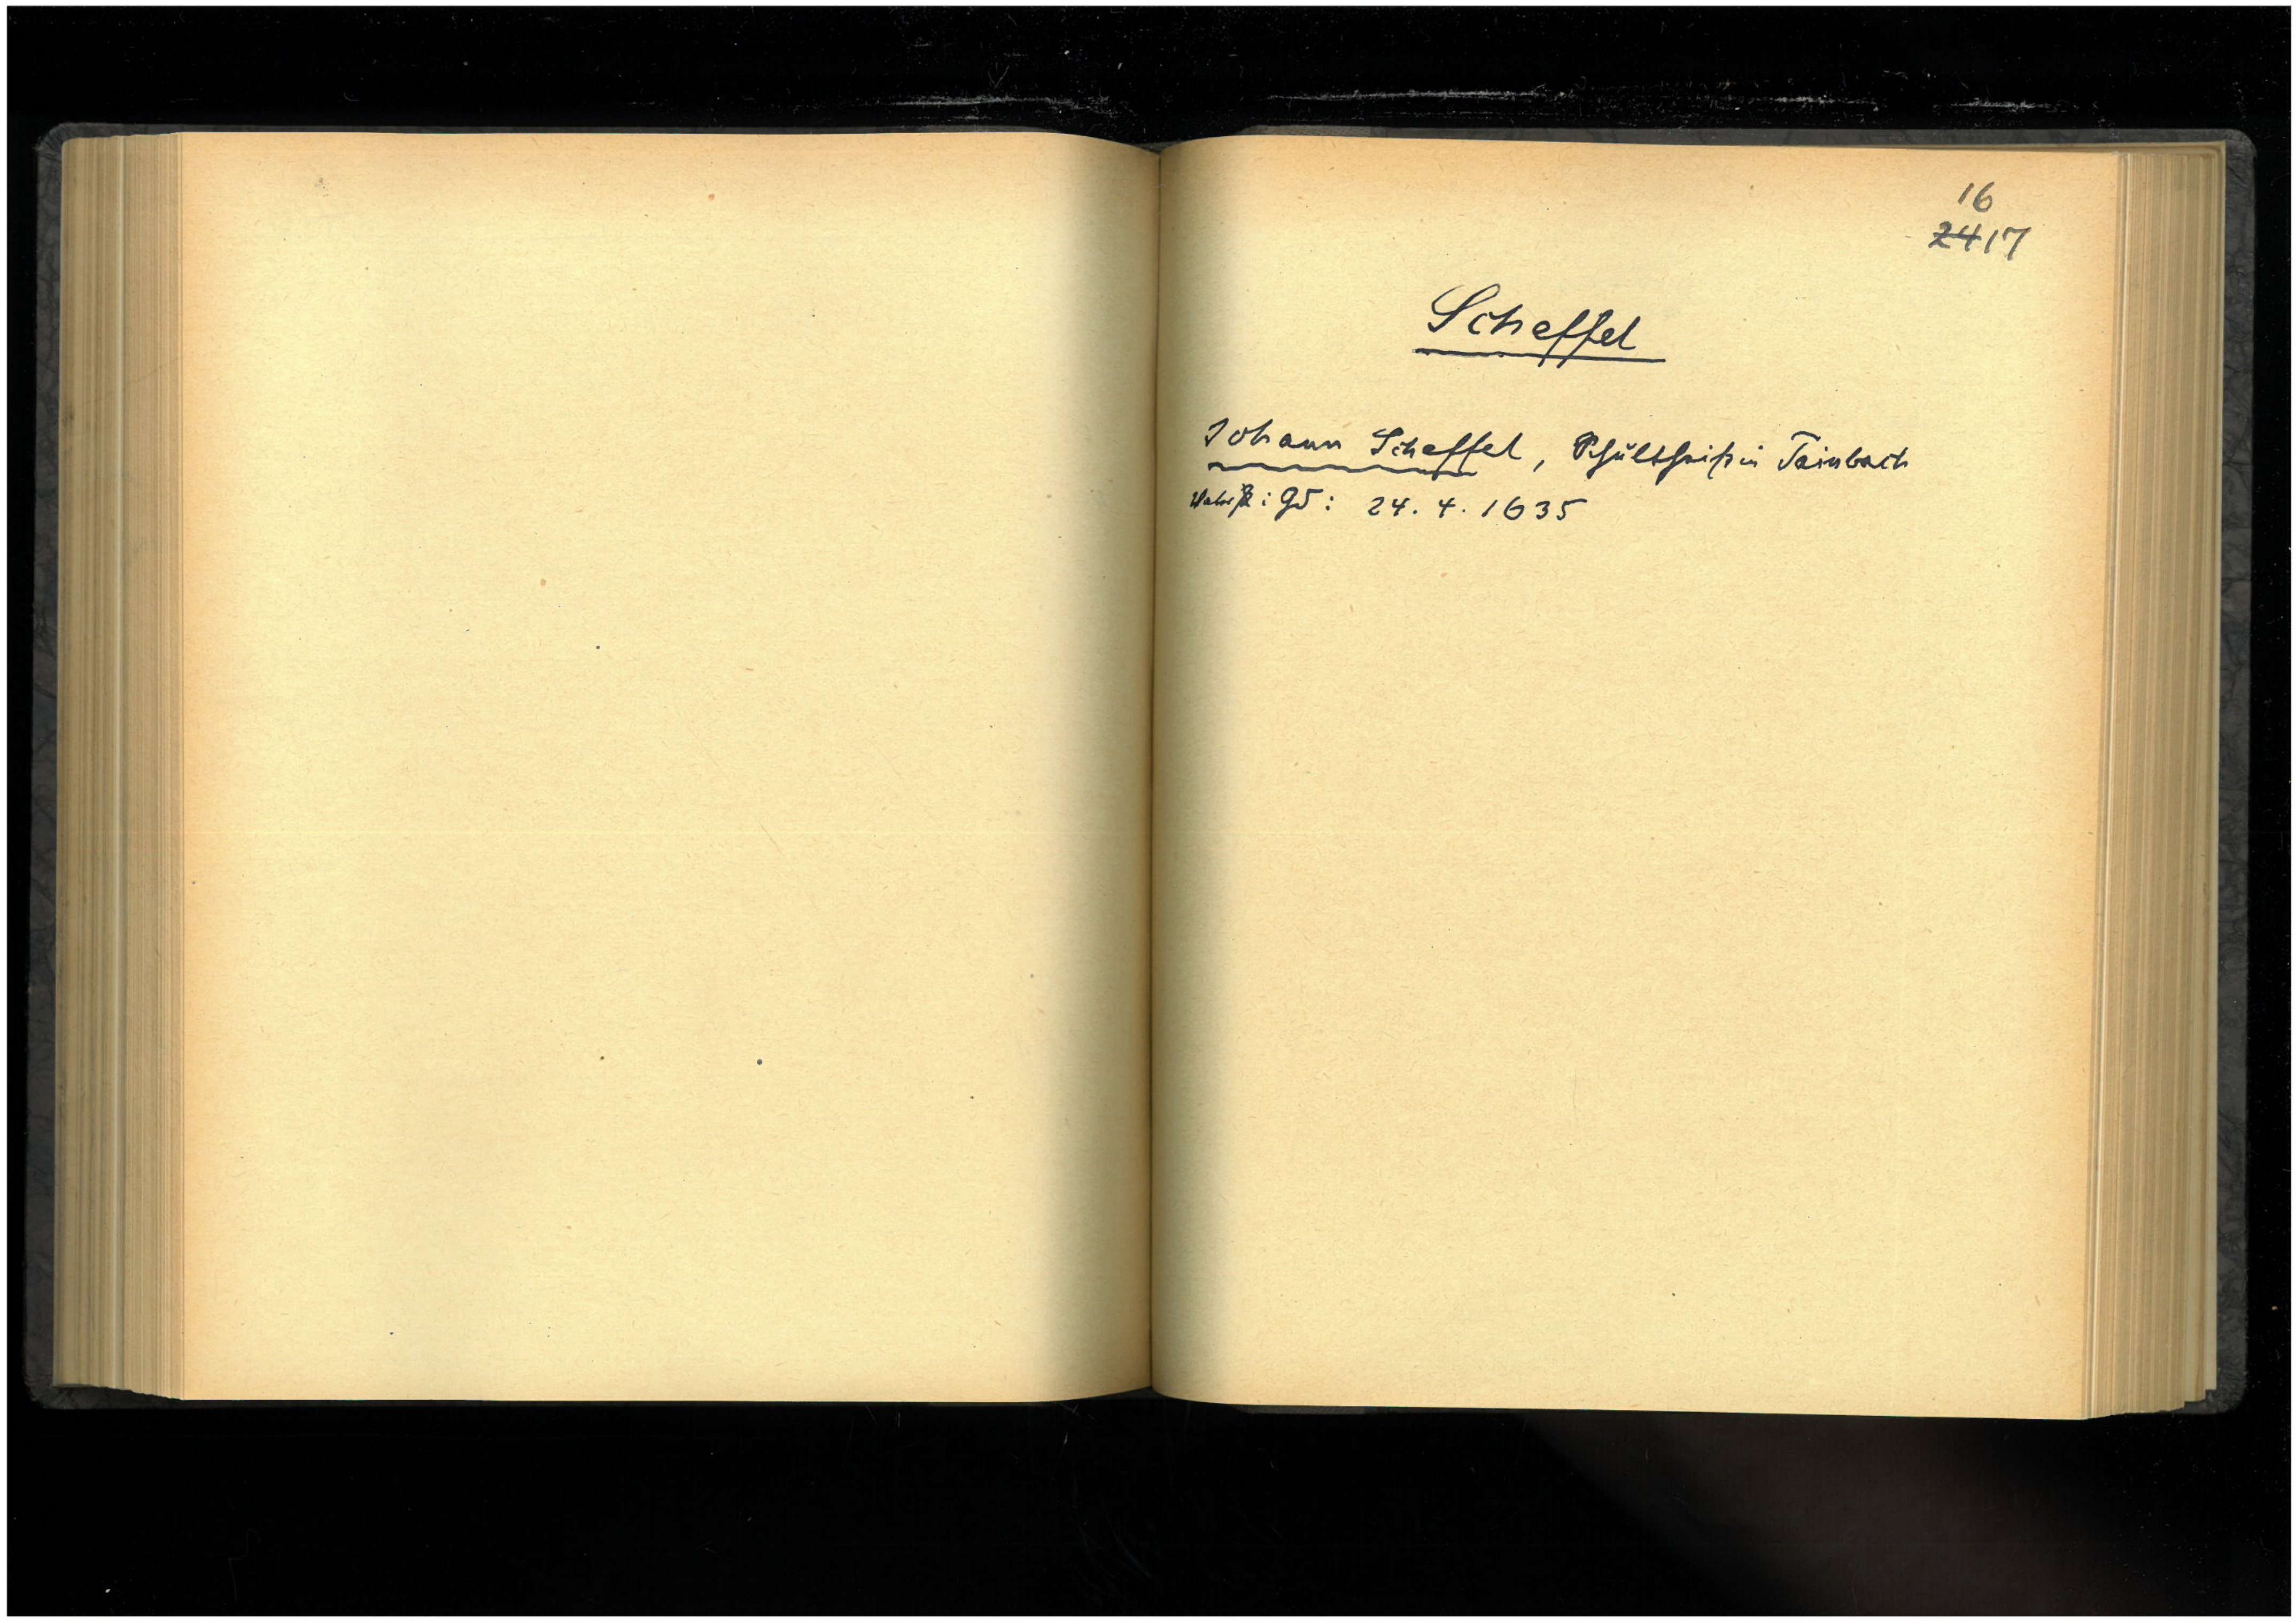 16
24 17
Scheffel
Johann Scheffel, Schultheiß in Tainbach
: 24. 4. 1635